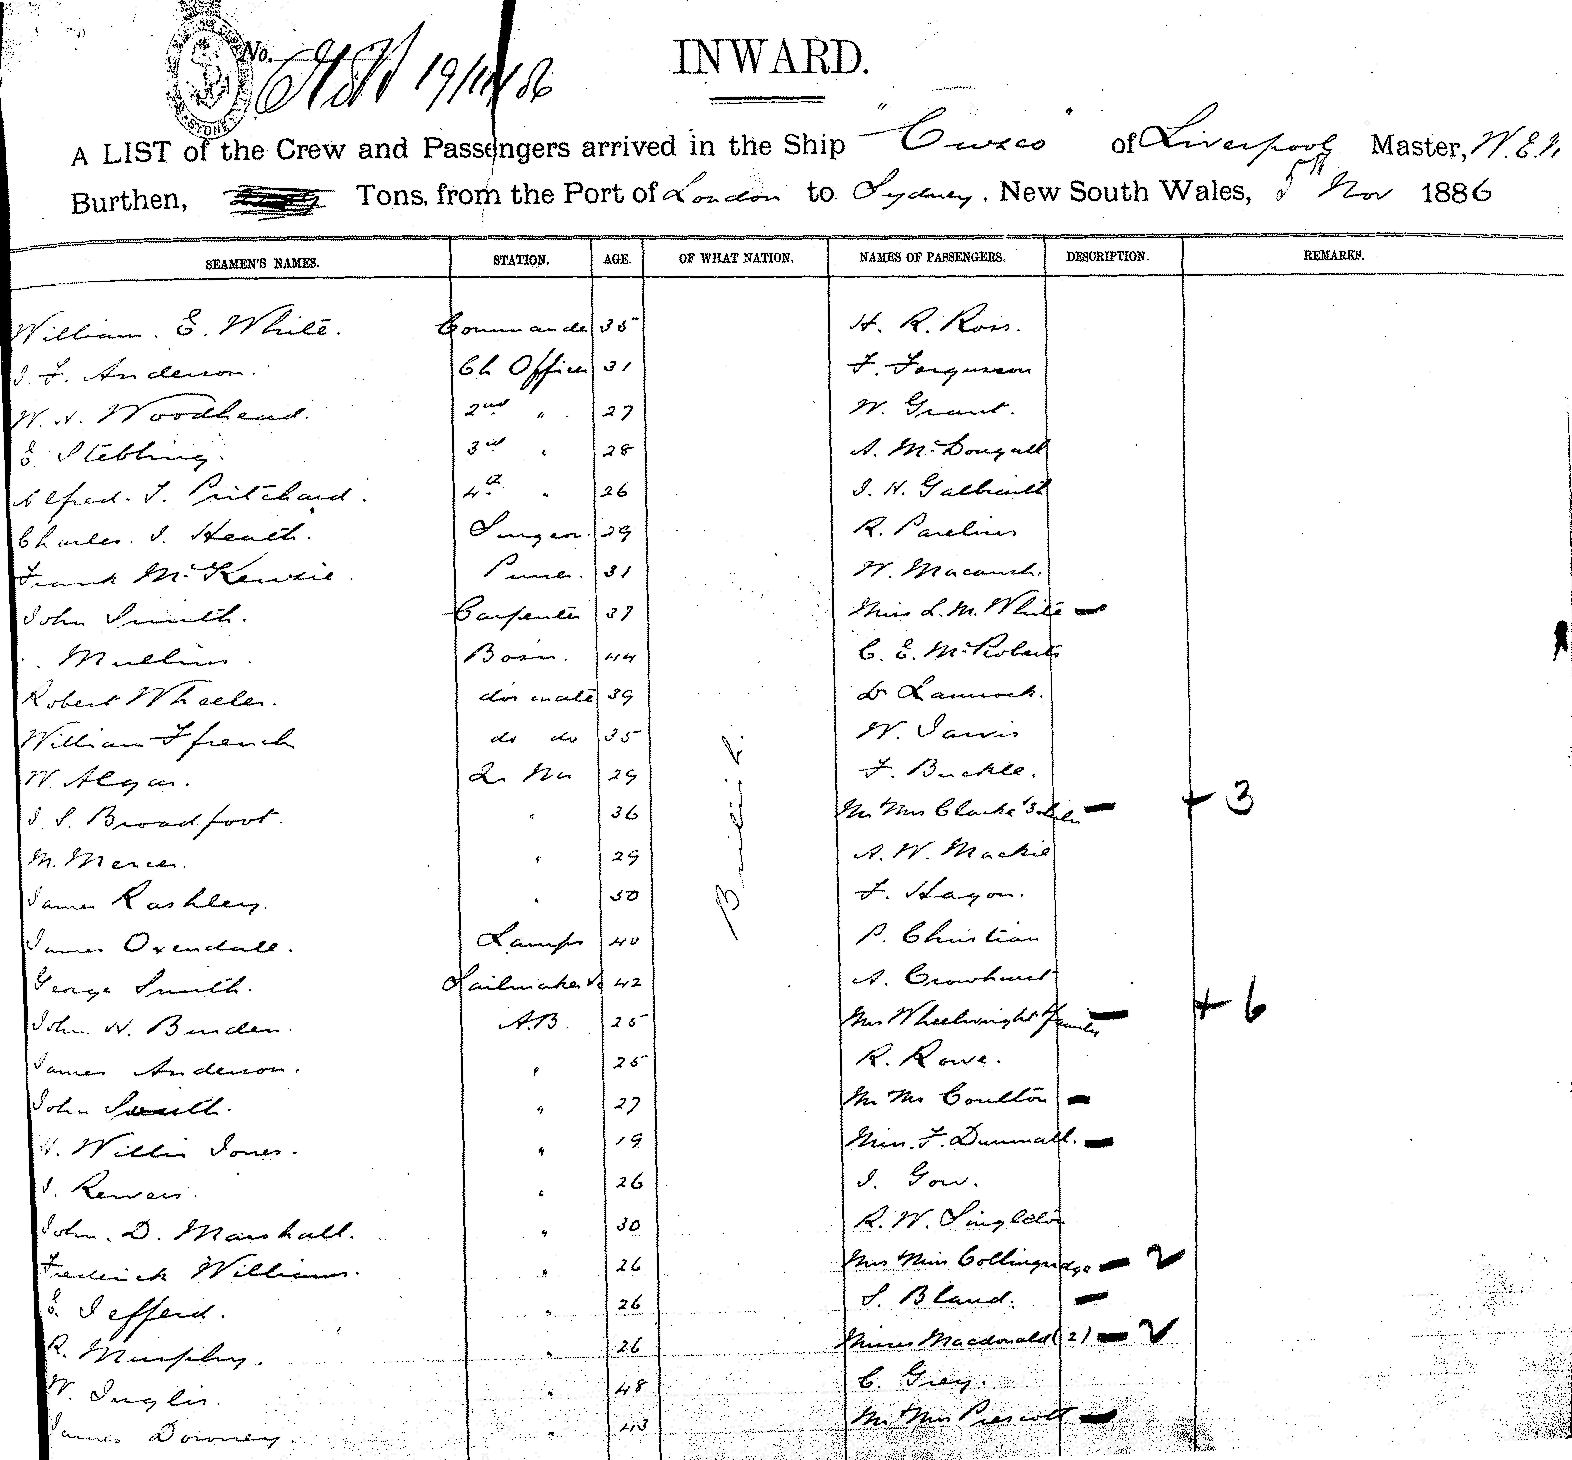 No. 19/11/86
INWARD.
SYDNEY
A LIST of the Crew and Passengers arrived in the Ship "Cuzco" of Liverpool Master, W. E.
Burthen, Tons, from the Port of London to Sydney, New South Wales, 5th Nov 1886
SEAMEN'S NAMES. STATION. AGE. OF WHAT NATION. NAMES OF PASSENGERS. DESCRIPTION. REMARKS.
William. E. White. Commande 35 H. R. Ross.
J. F. Anderson. Ch Officer 31 F. Fergusson
W. A. Woodhead. 2nd " 27 W. Grant.
E. Stebbing. 3rd " 28 A. McDougall
Alfred. J. Pritchard. 4th " 26 J. H. Galbraith
Charles. J. Heath. Surgeon 29 R.
Frank McKenzie. Purser. 31 W.
John Smith. Carpenter 37 Miss L. M. White
Mullins. Bosn. 44 C. E. McRoberts
Robert Wheeler. do mate 39
William Ffrench do do 35 W. Jarvis
W. Algar. Qr Mr 29 F. Buckle.
J. S. Broadfoot. " 36 Mr Mrs Clarke 3 + 3
M. Mercer. " 29 A. W. Mackie
James Rashley. " 50 F. Hagon.
James Oxendale. Lamps 40 P. Christian
George Smith. Sailmaker 42 A. Crowhurst
John W. Burden. A.B. 25 Mrs Wheelwright & family + 6
James Anderson. " 25 R. Rowe.
John South. " 27 Mr Mrs Coulton
H. Willis Jones. " 19 Miss. F. Dummall.
J. " 26 J. Gow.
John. D. Marshall. " 30 R. W. Singleton
Frederick Williams. " 26 Mrs Miss Collingridge 2
E. Jefferd. " 26 S. Bland.
R. Murphy. " 26 Misses Macdonald (2) 2
W. Inglis. " 48 C. Grey.
James Downey. " 43 Mr Mrs Prescott
British.